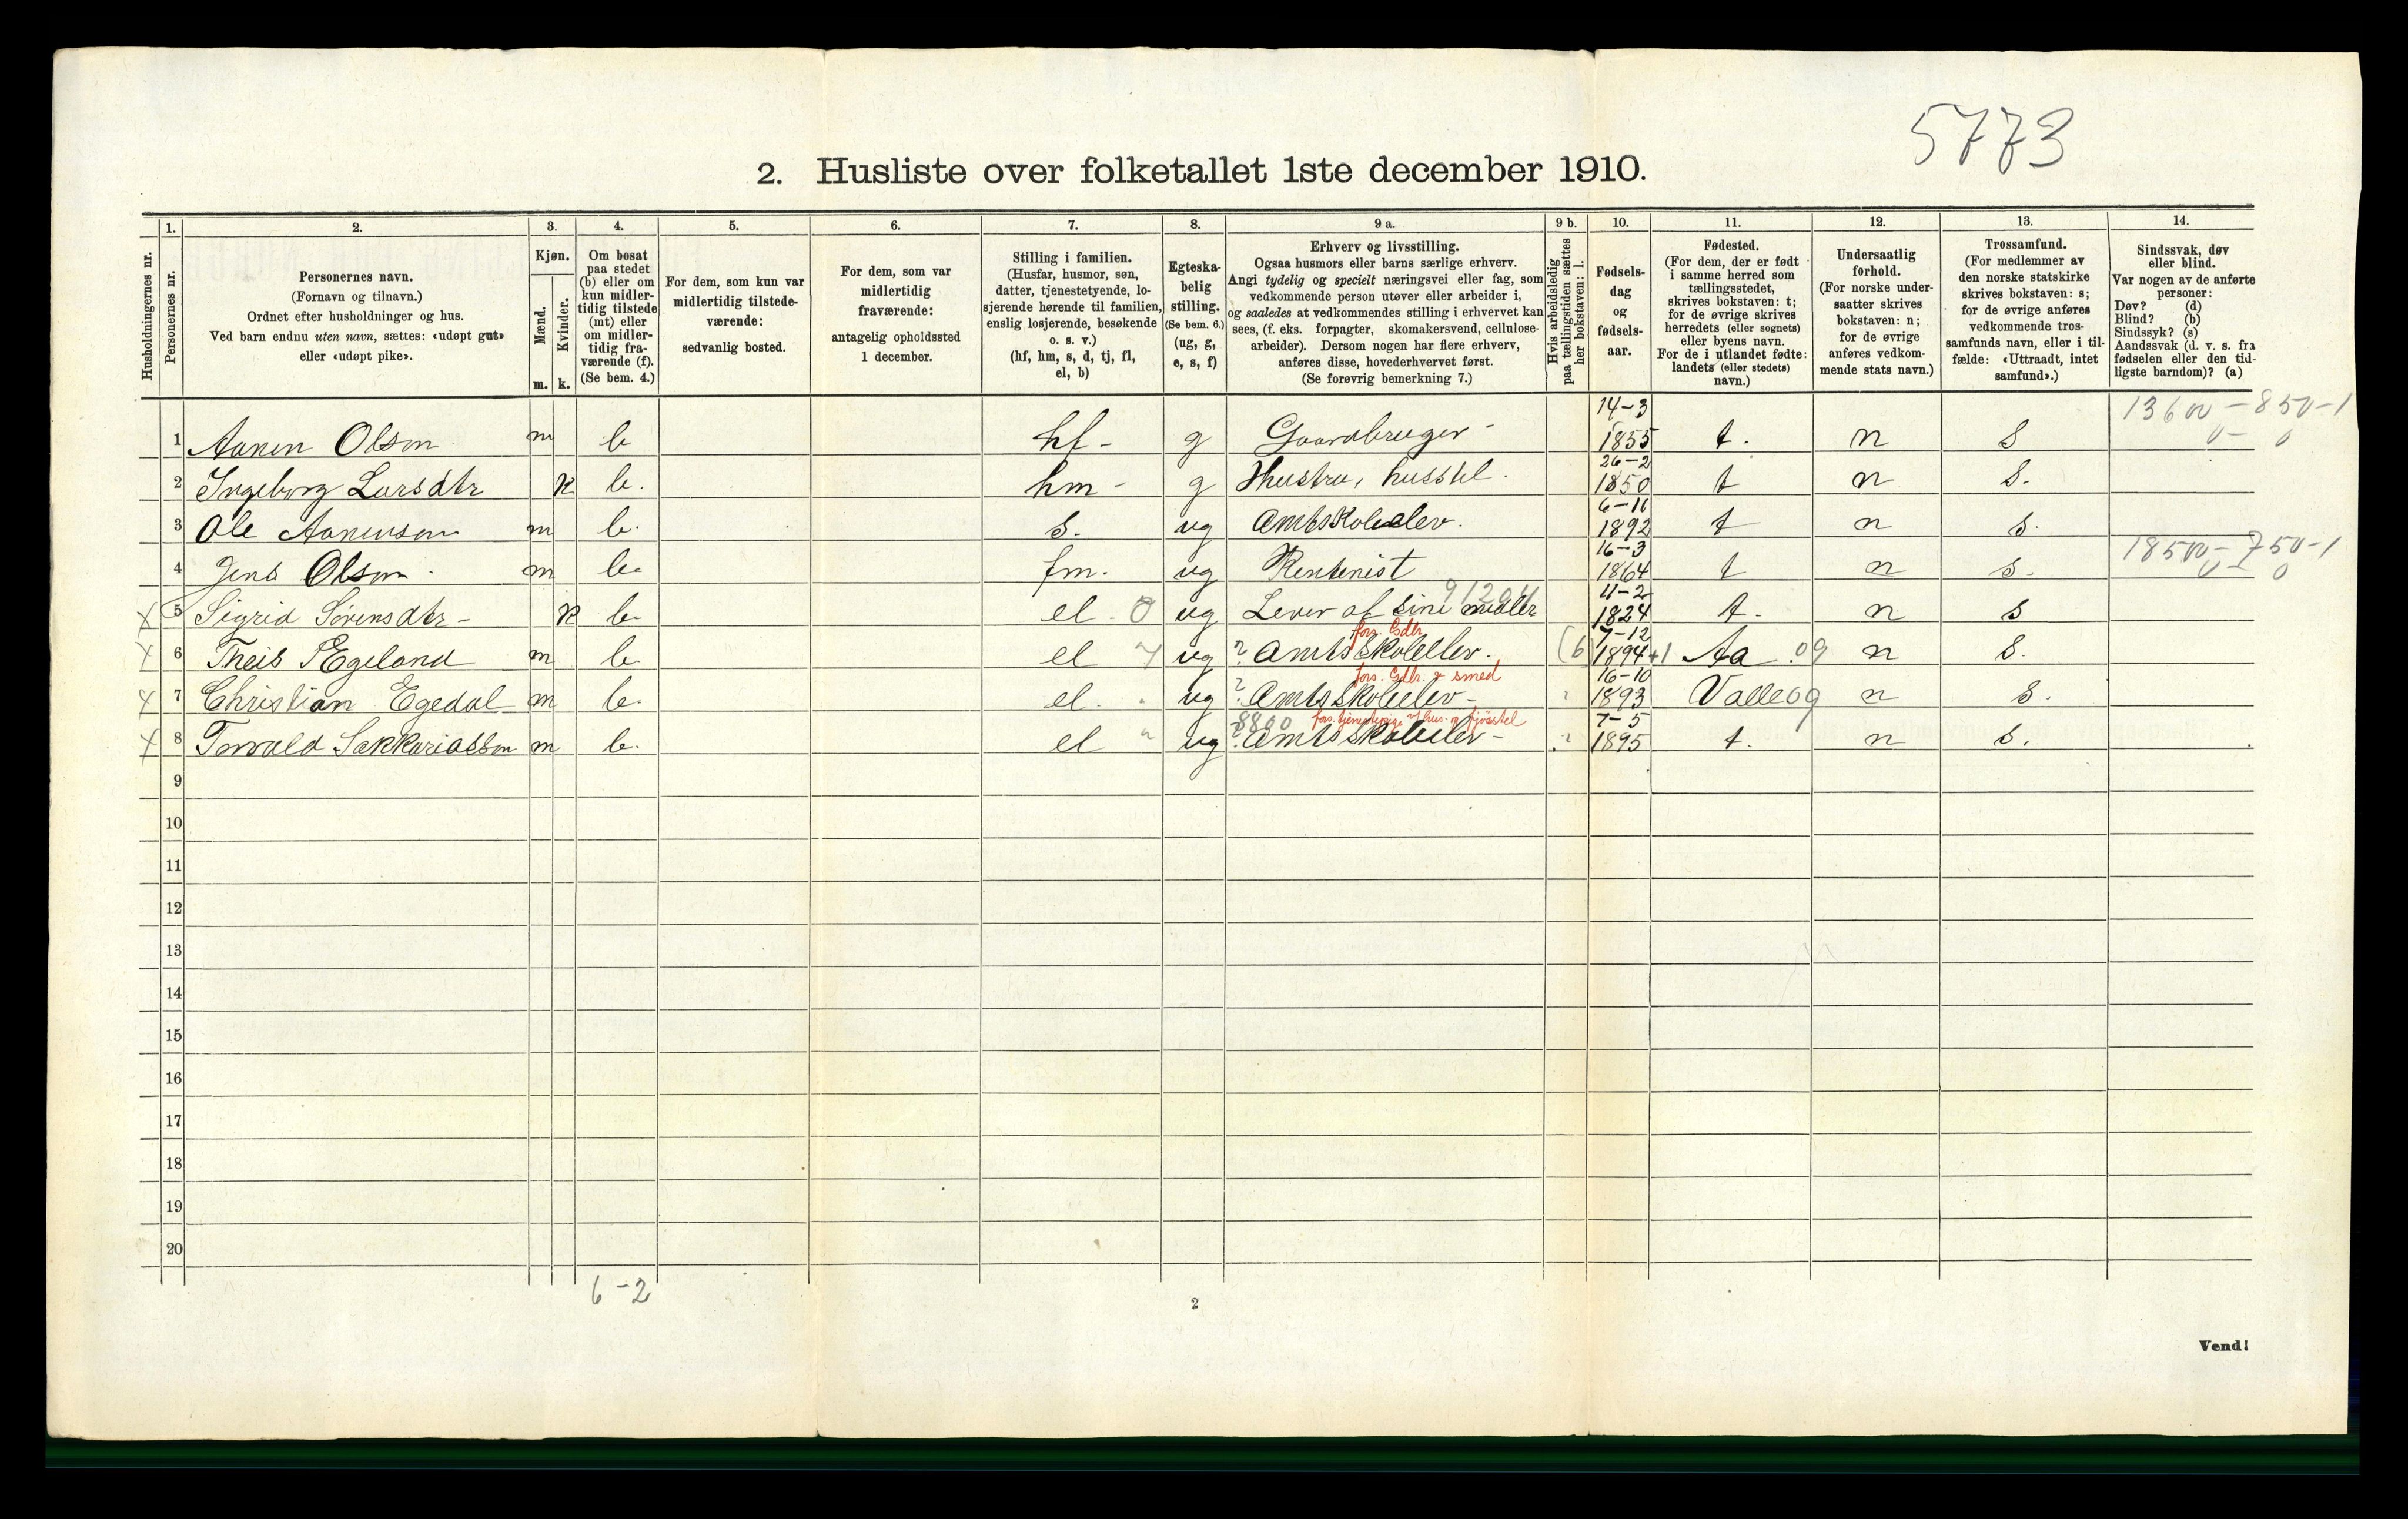 5773
2. Husliste over folketallet 1ste december 1910.
Husholdningernes nr.
1.
Personernes nr.
2.
Personernes navn.
(Fornavn og tilnavn.)
Ordnet efter husholdninger og hus.
Ved barn endnu uten navn, sættes: «udøpt gut»
eller «udøpt pike».
3.
Kjøn.
Mænd.
Kvinder.
m. k.
4.
Om bosat
paa stedet
(b) eller om
kun midler-
tidig tilstede
(mt) eller
om midler-
tidig fra-
værende (f).
(Se bem. 4.)
5.
For dem, som kun var
midlertidig tilstede-
værende:
sedvanlig bosted.
6.
For dem, som var
midlertidig
fraværende:
antagelig opholdssted
1 december.
7.
Stilling i familien.
(Husfar, husmor, søn,
datter, tjenestetyende, lo-
sjerende hørende til familien,
enslig losjerende, besøkende
o. s. v.)
(hf, hm, s, d, tj, fl,
el, b)
8.
Egteska-
belig
stilling.
(Se bem. 6.)
(ug, g,
e, s, f)
9 a.
Erhverv og livsstilling.
Ogsaa husmors eller barns særlige erhverv.
Angi tydelig og specielt næringsvei eller fag, som
vedkommende person utøver eller arbeider i,
og saaledes at vedkommendes stilling i erhvervet kan
sees, (f. eks. forpagter, skomakersvend, cellulose-
arbeider). Dersom nogen har flere erhverv,
anføres disse, hovederhvervet først.
(Se forøvrig bemerkning 7.)
9 b.
Hvis arbeidsledig
paa tællingstiden sættes
her bokstaven: l.
10.
Fødsels-
dag
og
fødsels-
aar.
11.
Fødested.
(For dem, der er født
i samme herred som
tællingsstedet,
skrives bokstaven: t;
for de øvrige skrives
herredets (eller sognets)
eller byens navn.
For de i utlandet fødte:
landets (eller stedets)
navn.)
12.
Undersaatlig
forhold.
(For norske under-
saatter skrives
bokstaven: n;
for de øvrige
anføres vedkom-
mende stats navn.)
13.
Trossamfund.
(For medlemmer av
den norske statskirke
skrives bokstaven: s;
for de øvrige anføres
vedkommende tros-
samfunds navn, eller i til-
fælde: «Uttraadt, intet
samfund».)
14.
Sindssvak, døv
eller blind.
Var nogen av de anførte
personer:
Døv? (d)
Blind? (b)
Sindssyk? (s)
Aandssvak (d. v. s. fra
fødselen eller den tid-
ligste barndom)? (a)
1 Aanen Olsen m b hf - g Gaardbruger - 14-3 1855 t. n s
2 Ingeborg Larsdtr k b. hm - g Hustru, husstel. 26-2 1850 t n s.
3 Ole Aanensen m b. s. ug Amtsskoleelev. 6-11 1892 t n s.
4 Jens Olsen m b. fm. ug Rentenist 16-3 1864 t n s.
X 5 Sigrid Sørensdtr - k b. el. 0 ug Lever af sine midler 11-2 1824 t. n s
X 6 Theis Egeland m b el ug ? Amtsskoleelev. fors. Gdbr. (6) 7-12 1894 +1 Aa 09 n s.
X 7 Christian Egedal m b. el. ug ? Amtsskoleelev - fors. Gdbr. & smed 16-10 1893 Valle 09 n s.
X 8 Torvald Sakkariassen m b. el " ug ? Amtsskoleelev - 8800 7-5 1895 t. n s.
9
10
11
12
13
14
15
16
17
18
19
20
6-2
2
Vend!